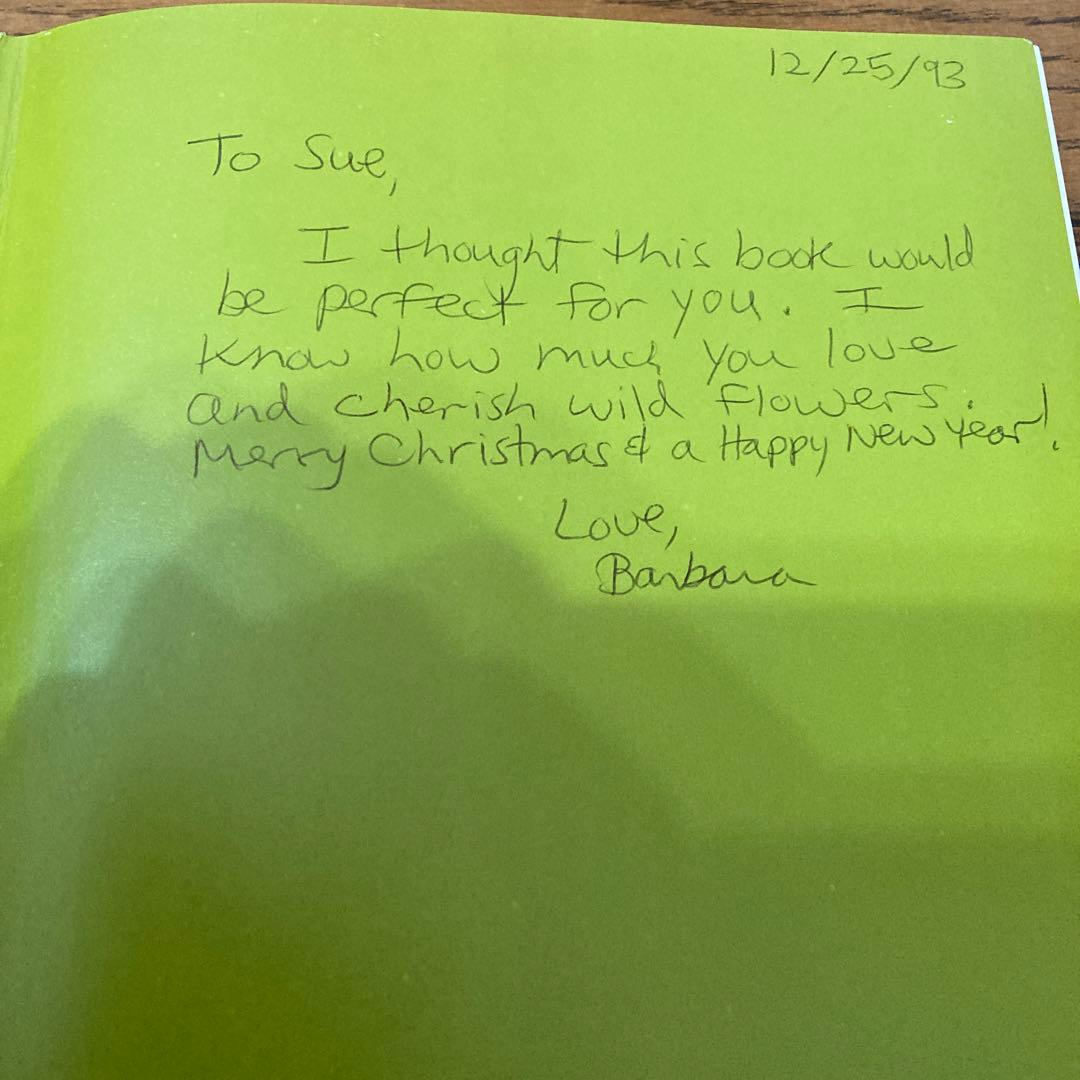 12/25/93
To Sue,
I thought this book would
be perfect for you. I
know how much you love
and cherish wild flowers.
Merry Christmas & a Happy New Year!
Love,
Barbara